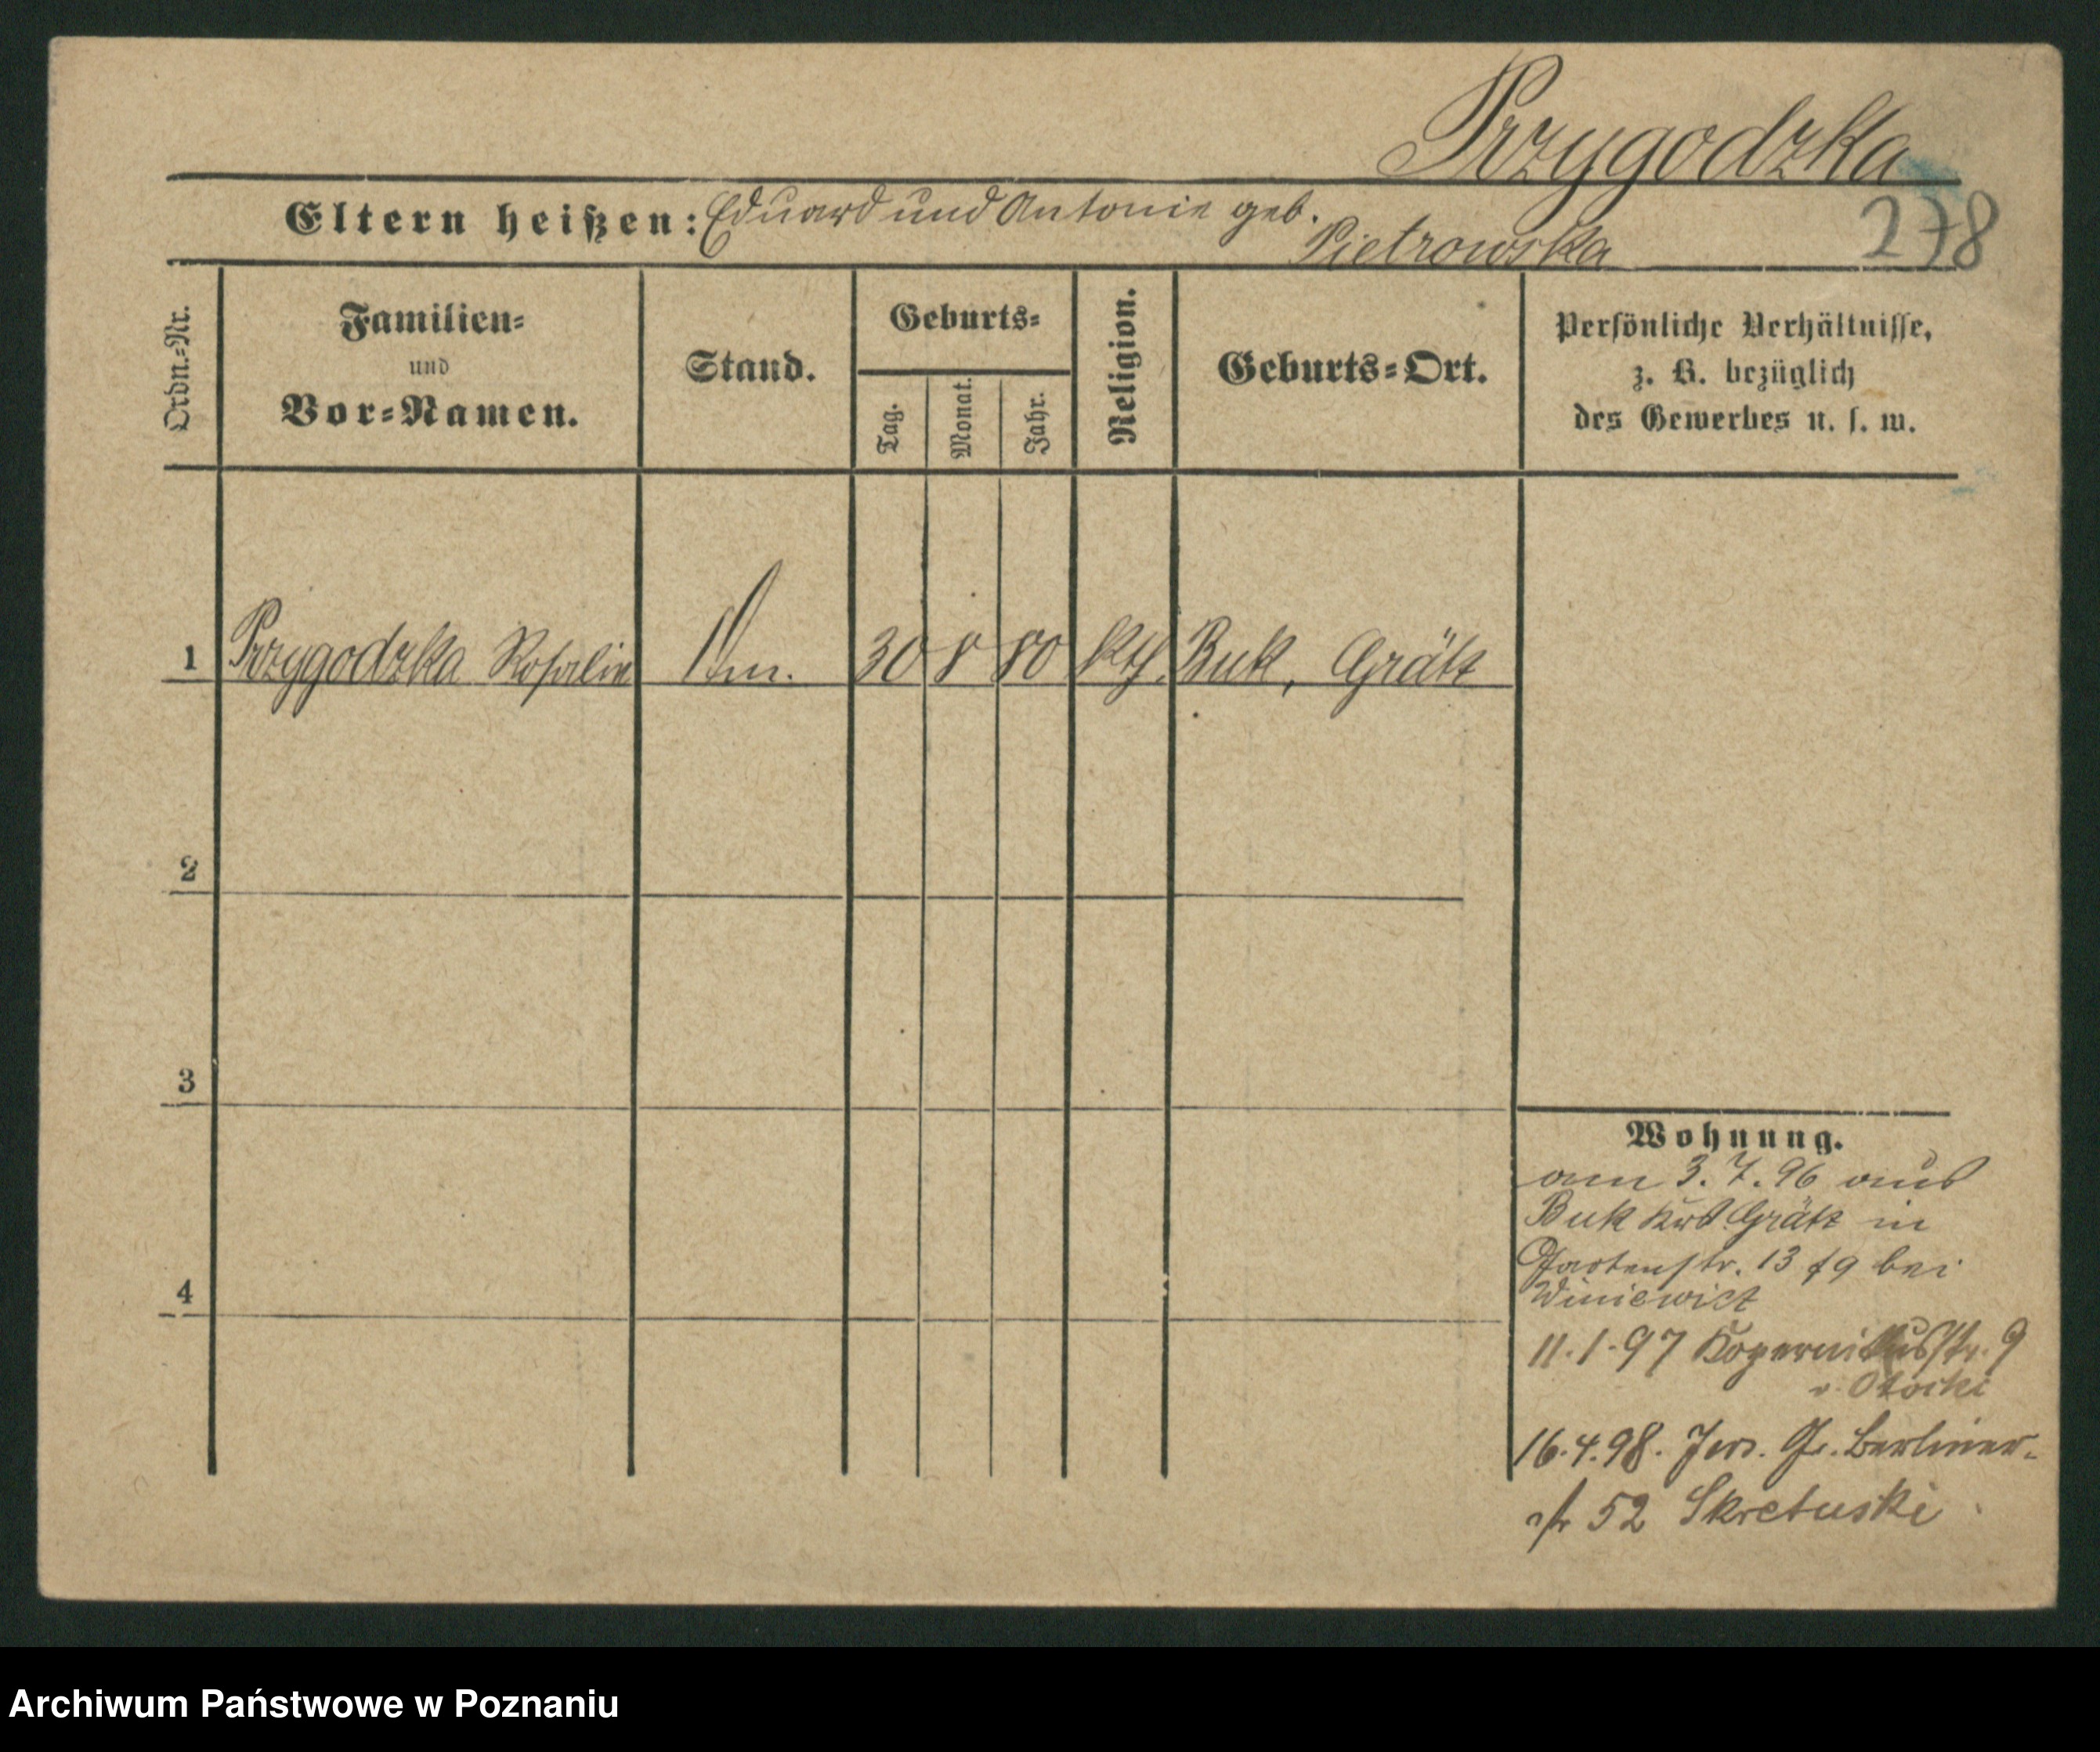 Przygodzka
Eltern heißen: Eduard und Antonie geb.
Pietrowska
278
Ordn.-Nr.
Familien-
und
Vor-Namen.
Stand.
Geburts-
Tag.
Monat.
Jahr.
Religion.
Geburts-Ort.
Persönliche Verhältnisse,
z. B. bezüglich
des Gewerbes u. s. w.
1 Przygodzka Rosalie 30 8 80 kth. Buk, Grätz
2
3
4
Wohnung.
am 3.7.96 aus
Buk Grätz in
Gartenstr. 13 bei
Winiewicz
11.1.97 Kopernikusstr. 9
Otocki
16.4.98. Jers. Gr. Berliner-
str 52 Skretuski
Archiwum Państwowe w Poznaniu